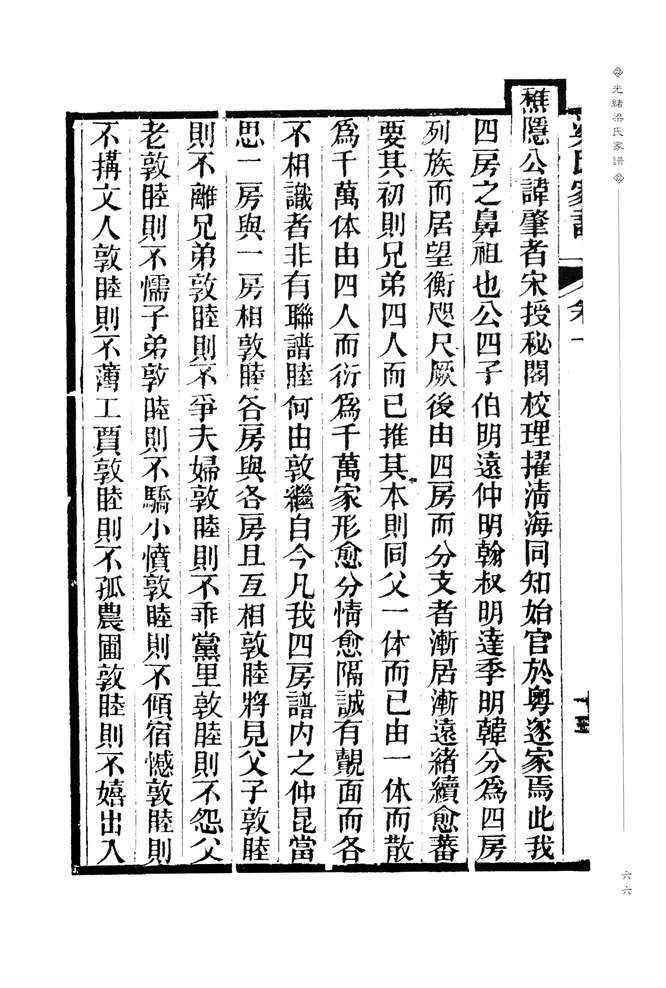 光緒梁氏家譜
梁氏家譜
卷一
十五
樵隱公諱肇者宋授秘閣校理擢清海同知始官於粵遂家焉此我
四房之鼻祖也公四子伯明遠仲明翰叔明達季明韓分爲四房
列族而居望衡咫尺厥後由四房而分支者漸居漸遠緒續愈蕃
要其初則兄弟四人而已推其本則同父一体而已由一体而散
爲千萬体由四人而衍爲千萬家形愈分情愈隔誠有覿面而各
不相識者非有聯譜睦何由敦繼自今凡我四房譜内之仲昆當
思一房與一房相敦睦各房與各房且互相敦睦將見父子敦睦
則不離兄弟敦睦則不爭夫婦敦睦則不乖黨里敦睦則不怨父
老敦睦則不懦子弟敦睦則不驕小憤敦睦則不傾宿憾敦睦則
不搆文人敦睦則不薄工賈敦睦則不孤農圃敦睦則不嬉出入
六六